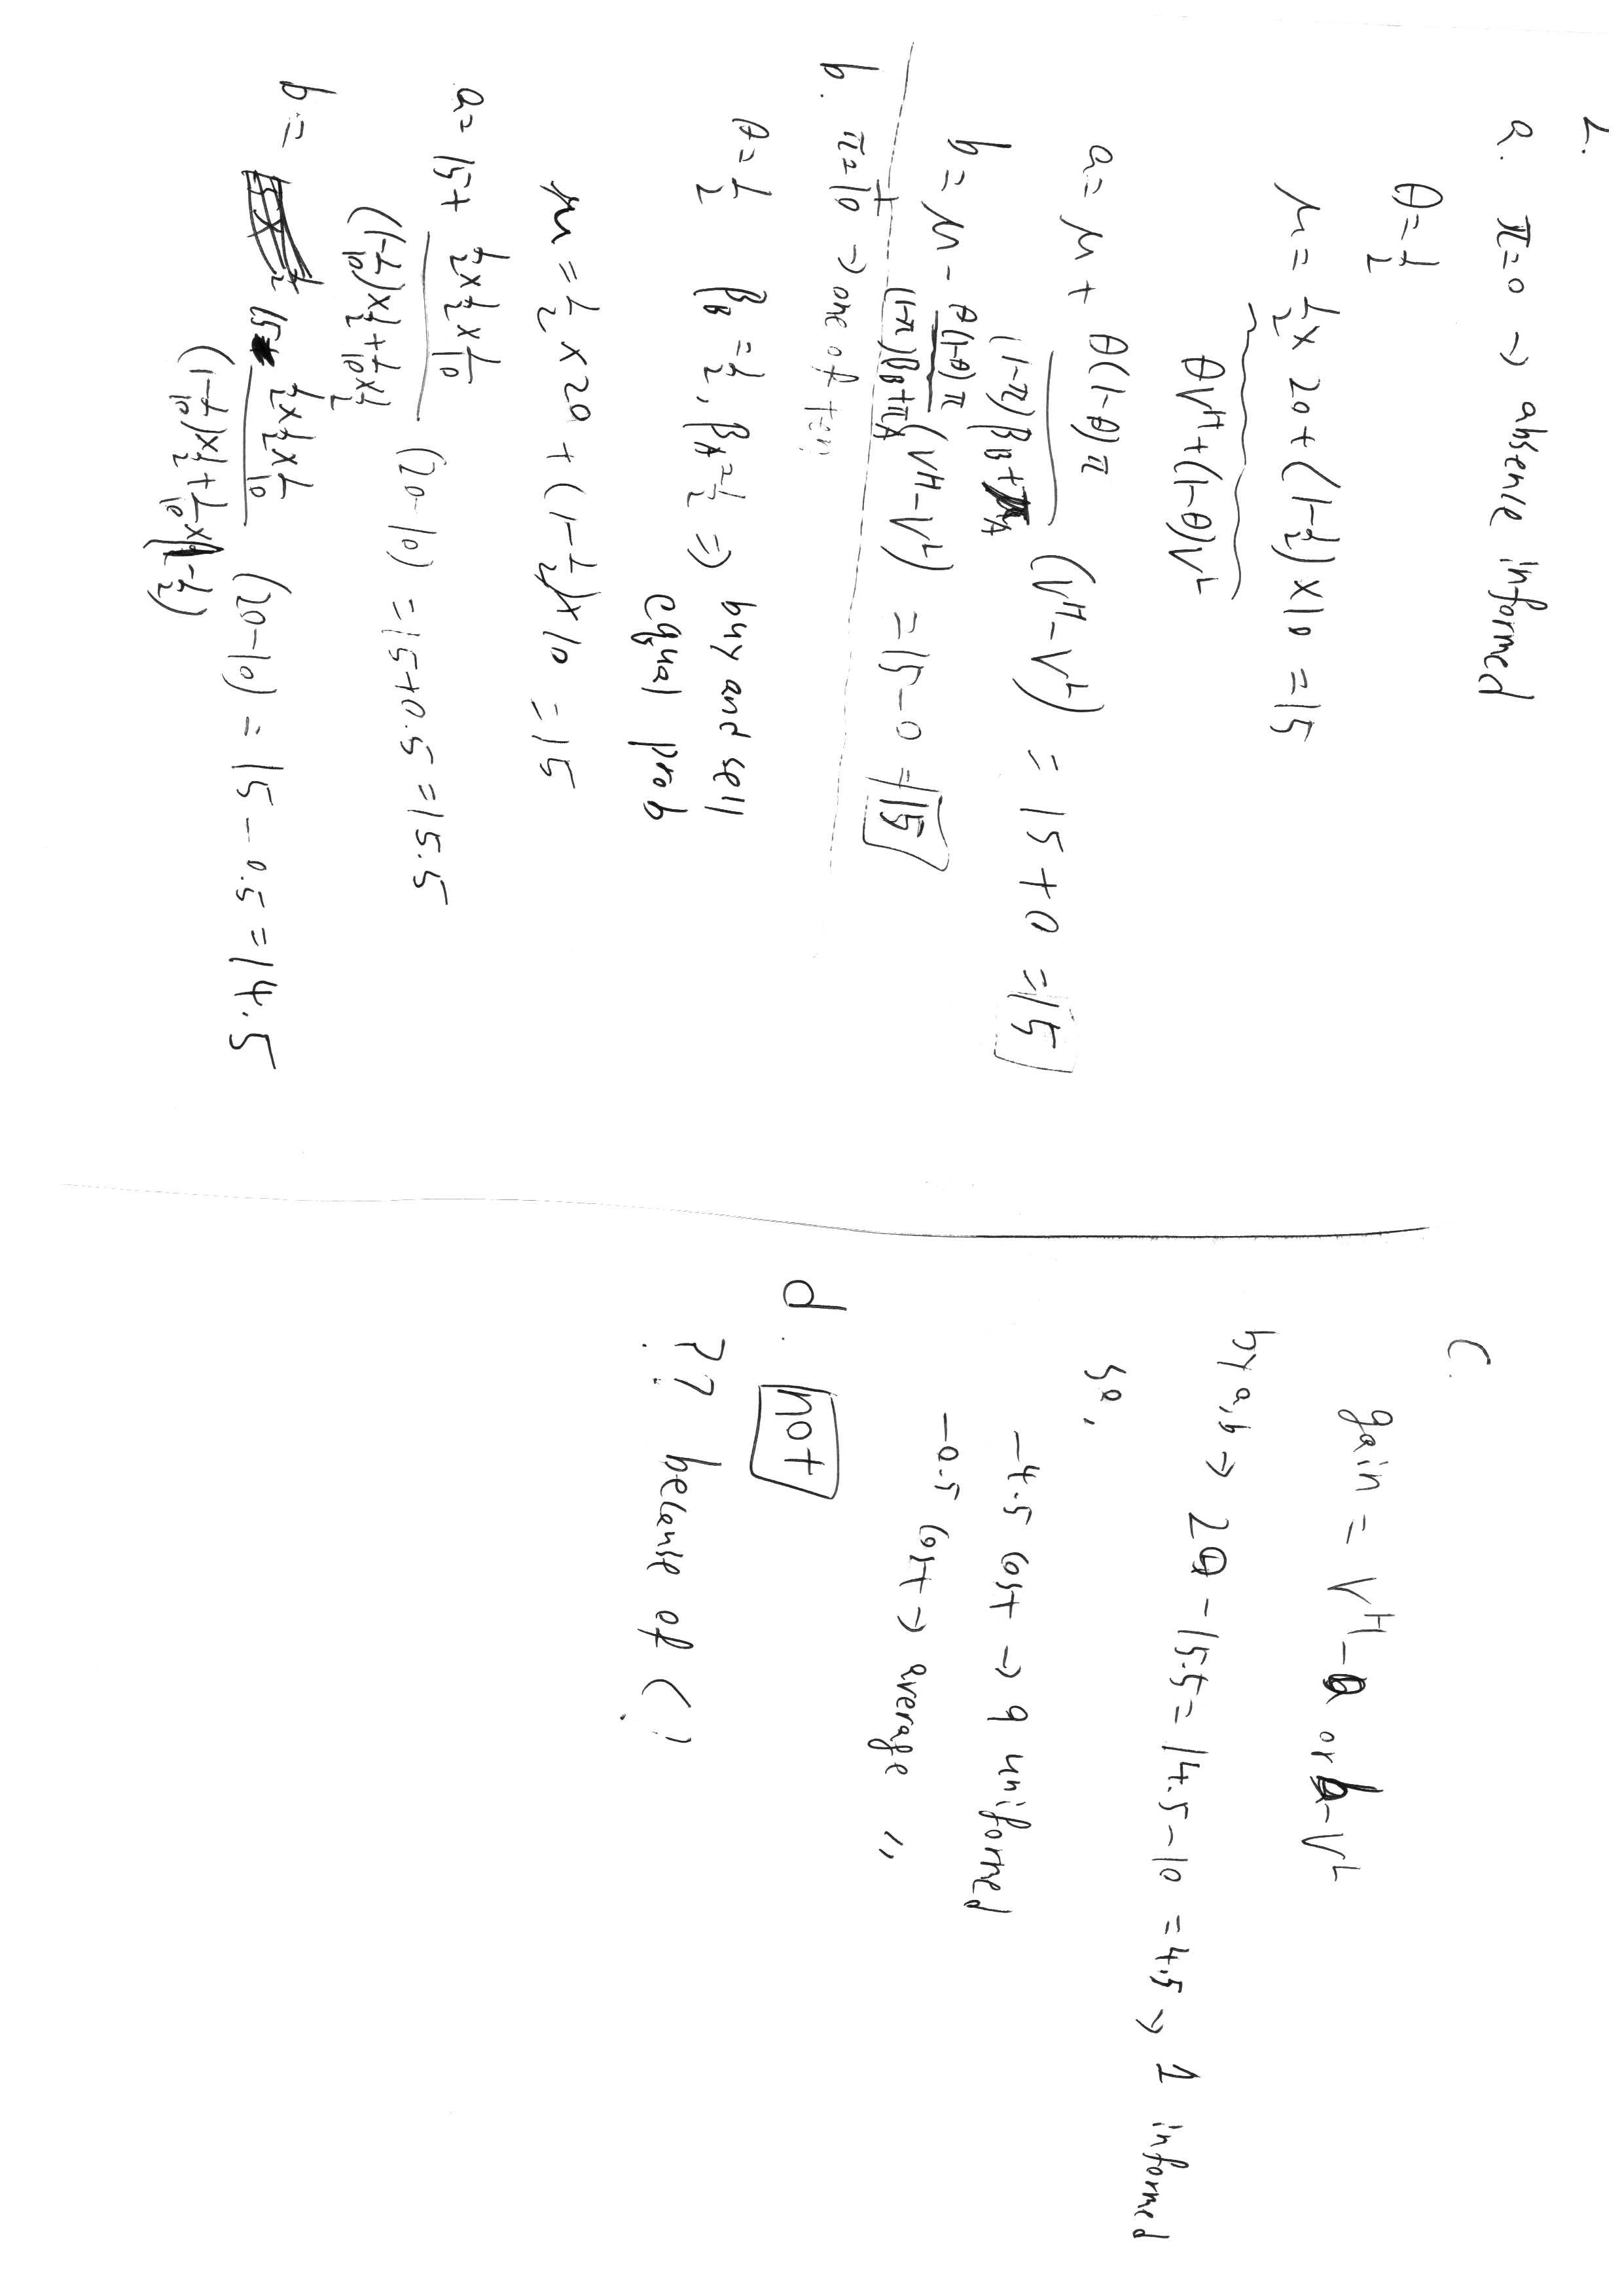 2.
a. π=0 → absence informed
θ=1/2
μ= 1/2 × 20+(1-1/2)×10 =15
θV^H+(1-θ)V^L
a= μ+ θ(1-θ)π / ((1-π)β_B+π_A) (V^H-V^L) = 15+0 =15
b= μ- θ(1-θ)π / ((1-π)β_B+π_A) (V^H-V^L) =15-0 =15
b. π=1/10 → one of ten
θ=1/2 β_B=1/2, β_A=1/2 ⇒ buy and sell
equal prob
μ=1/2×20+(1-1/2)×10 =15
a= 15+ (1/2×1/2×1/10) / ((1-1/10)×1/2+1/10×1/2) (20-10) =15+0.5=15.5
b= 15- (1/2×1/2×1/10) / ((1-1/10)×1/2+1/10×(1-1/2)) (20-10) = 15-0.5=14.5
C.
gain = V^H-a or b-V^L
by a,b → 20-15.5=14.5-10=4.5 → 1 informed
so,
-4.5 cost → 9 uniformed
-0.5 cost → average "
d. not
?? because of C?